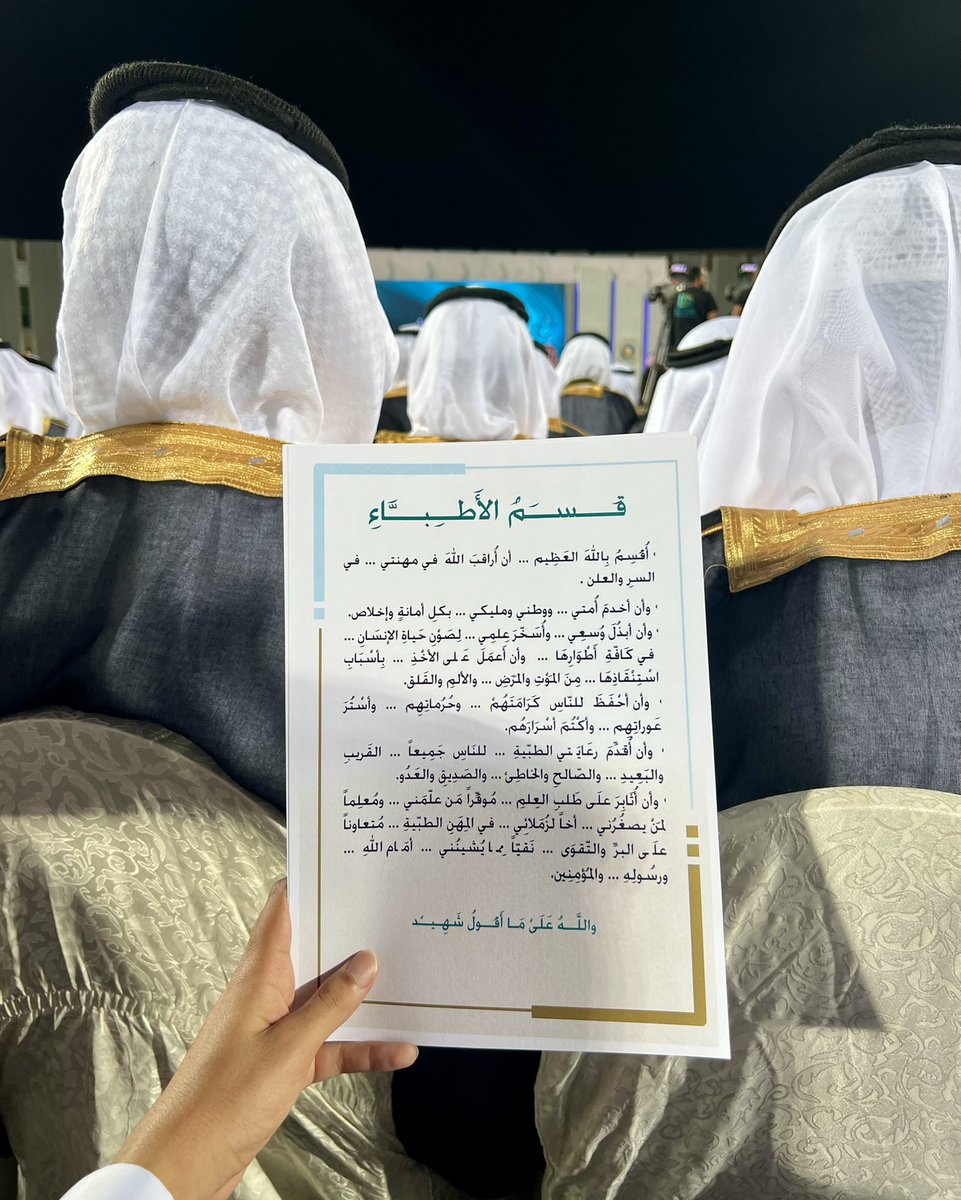 قَــسَــمُ الأَطِـبَّـاءِ
' أُقْسِمُ بِاللهَ العَظِيم ... أن أُراقبَ اللهَ في مهنتي ... في
السرِ والعلن .
' وأن أخدمَ أُمتي ... ووطني ومليكي ... بكلِ أمانةٍ وإخلاص.
' وأن أبذُلَ وُسعِي ... وأُسَخّرَ عِلمِي ... لِصَوْنِ حَياةِ الإنسَانِ ...
في كَافّةِ أَطْوَارِهَا ... وأن أَعمَلَ عَلى الأخْذِ ... بِأسْبَابِ
اسْتِنْقَاذِهَا ... مِنَ المَوْتِ والمَرَضِ ... والألمِ والقَلق.
' وأن أحْفَظَ للنّاسِ كَرَامَتَهُمْ ... وحُرُماتِهِم ... وأسْتُرَ
عَوراتِهِم ... وأكْتُمَ أسْرَارَهُم.
' وأن أُقَدِّمَ رعَايَتي الطبّيةِ ... للنَاسِ جَمِيعاً ... القَريبِ
والبَعِيدِ ... والصّالحِ والخَاطِئ ... والصَدِيقِ والعَدُو.
' وأن أُثَابِرَ علَى طَلبِ العِلمِ ... مُوقّراً مَن علّمَني ... ومُعلِماً
لمَنْ يصغُرُني ... أخاً لزُملائِي ... في المِهَنِ الطبّيةِ ... مُتعاوناً
علَى البرِّ والتّقوَى ... نَقيّاً مِما يُشينُني ... أمَام اللهِ ...
ورسُولِهِ ... والمُؤمِنِين.
واللَّـهُ عَلَىْ مَا أَقـُولُ شَهِيْـد